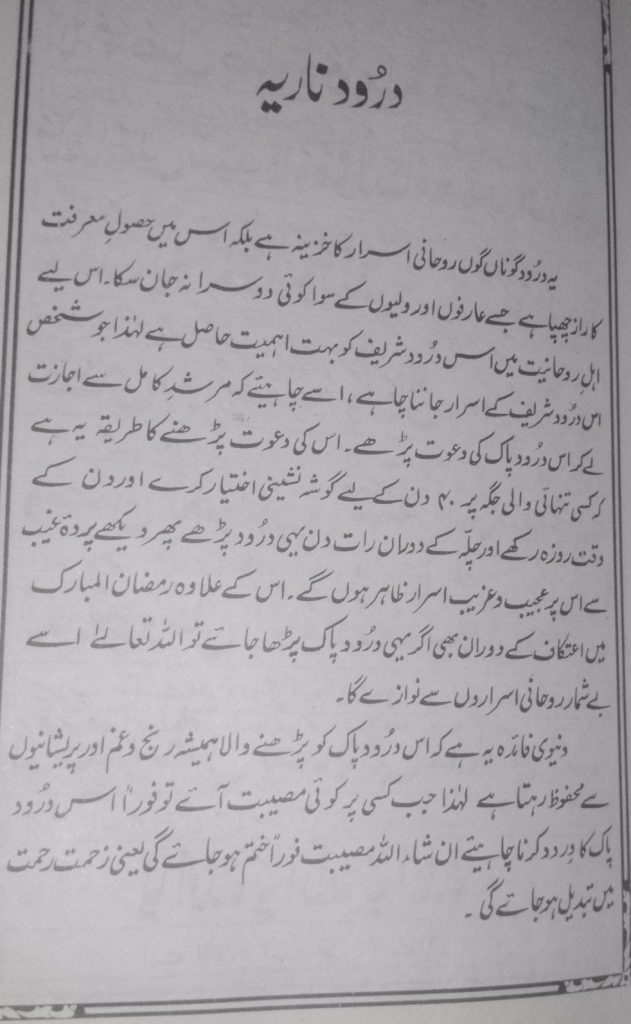 درُود ناریہ
یہ درُود گوناں گوں روحانی اسرار کا خزینہ ہے بلکہ اس میں حصولِ معرفت
کا راز چھپا ہے جسے عارفوں اور ولیوں کے سوا کوئی دوسرا نہ جان سکا۔ اس لیے
اہلِ روحانیت میں اس درُود شریف کو بہت اہمیت حاصل ہے لہٰذا جو شخص
اس درُود شریف کے اسرار جاننا چاہے، اسے چاہیئے کہ مرشدِ کامل سے اجازت
لے کر اس درُود پاک کی دعوت پڑھے۔ اس کی دعوت پڑھنے کا طریقہ یہ ہے
کہ کسی تنہائی والی جگہ پر ۴۰ دن کے لیے گوشہ نشینی اختیار کرے اور دن کے
وقت روزہ رکھے اور چلّہ کے دوران رات دن یہی درُود پڑھے پھر دیکھے پردۂ غیب
سے اس پر عجیب و غریب اسرار ظاہر ہوں گے۔ اس کے علاوہ رمضان المبارک
میں اعتکاف کے دوران بھی اگر یہی درُود پاک پڑھا جائے تو اللہ تعالےٰ اسے
بے شمار روحانی اسراروں سے نوازے گا۔
دنیوی فائدہ یہ ہے کہ اس درُود پاک کو پڑھنے والا ہمیشہ رنج و غم اور پریشانیوں
سے محفوظ رہتا ہے لہٰذا جب کسی پر کوئی مصیبت آئے تو فوراً اس درُود
پاک کا وِرد کرنا چاہیئے ان شاء اللہ مصیبت فوراً ختم ہو جائے گی یعنی زحمت رحمت
میں تبدیل ہو جائے گی۔